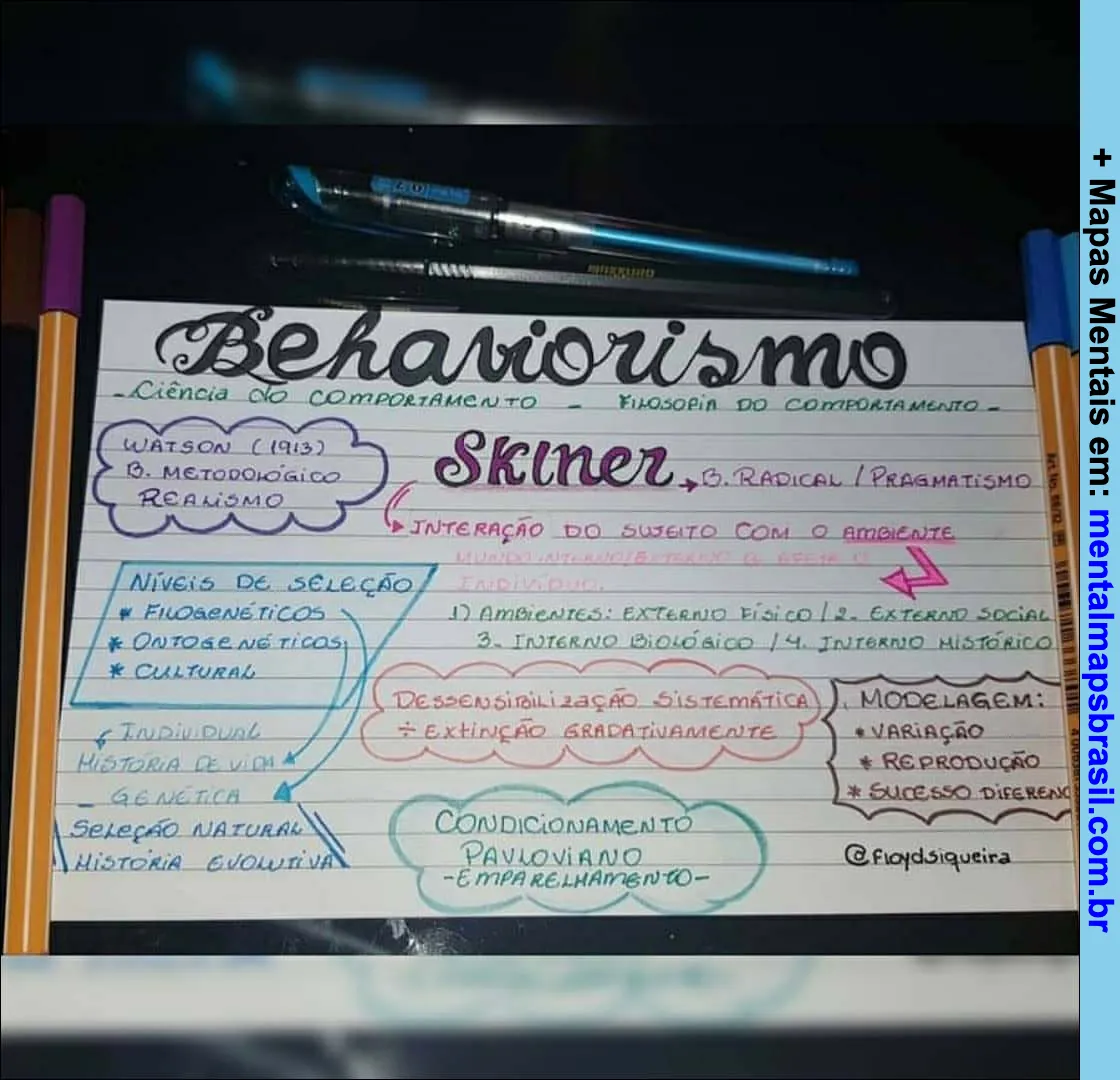 Behaviorismo
- Ciência do COMPORTAMENTO - FILOSOFIA DO COMPORTAMENTO -
WATSON (1913)
B. METODOLÓGICO
REALISMO
Skiner
B. RADICAL / PRAGMATISMO
INTERAÇÃO DO SUJEITO COM O AMBIENTE
MUNDO INTERNO/EXTERNO Q AFETA O
INDIVÍDUO.
1) AMBIENTES: EXTERNO FÍSICO / 2. EXTERNO SOCIAL
3. INTERNO BIOLÓGICO / 4. INTERNO HISTÓRICO
NÍVEIS DE SELEÇÃO
* FILOGENÉTICOS
* ONTOGENÉTICOS
* CULTURAL
INDIVIDUAL
HISTÓRIA DE VIDA
- GENÉTICA
SELEÇÃO NATURAL
HISTÓRIA EVOLUTIVA
DESSENSIBILIZAÇÃO SISTEMÁTICA
÷ EXTINÇÃO GRADATIVAMENTE
MODELAGEM:
* VARIAÇÃO
* REPRODUÇÃO
* SUCESSO DIFERENC
CONDICIONAMENTO
PAVLOVIANO
-EMPARELHAMENTO-
@FloydSiqueira
+ Mapas Mentais em: mentalmapsbrasil.com.br